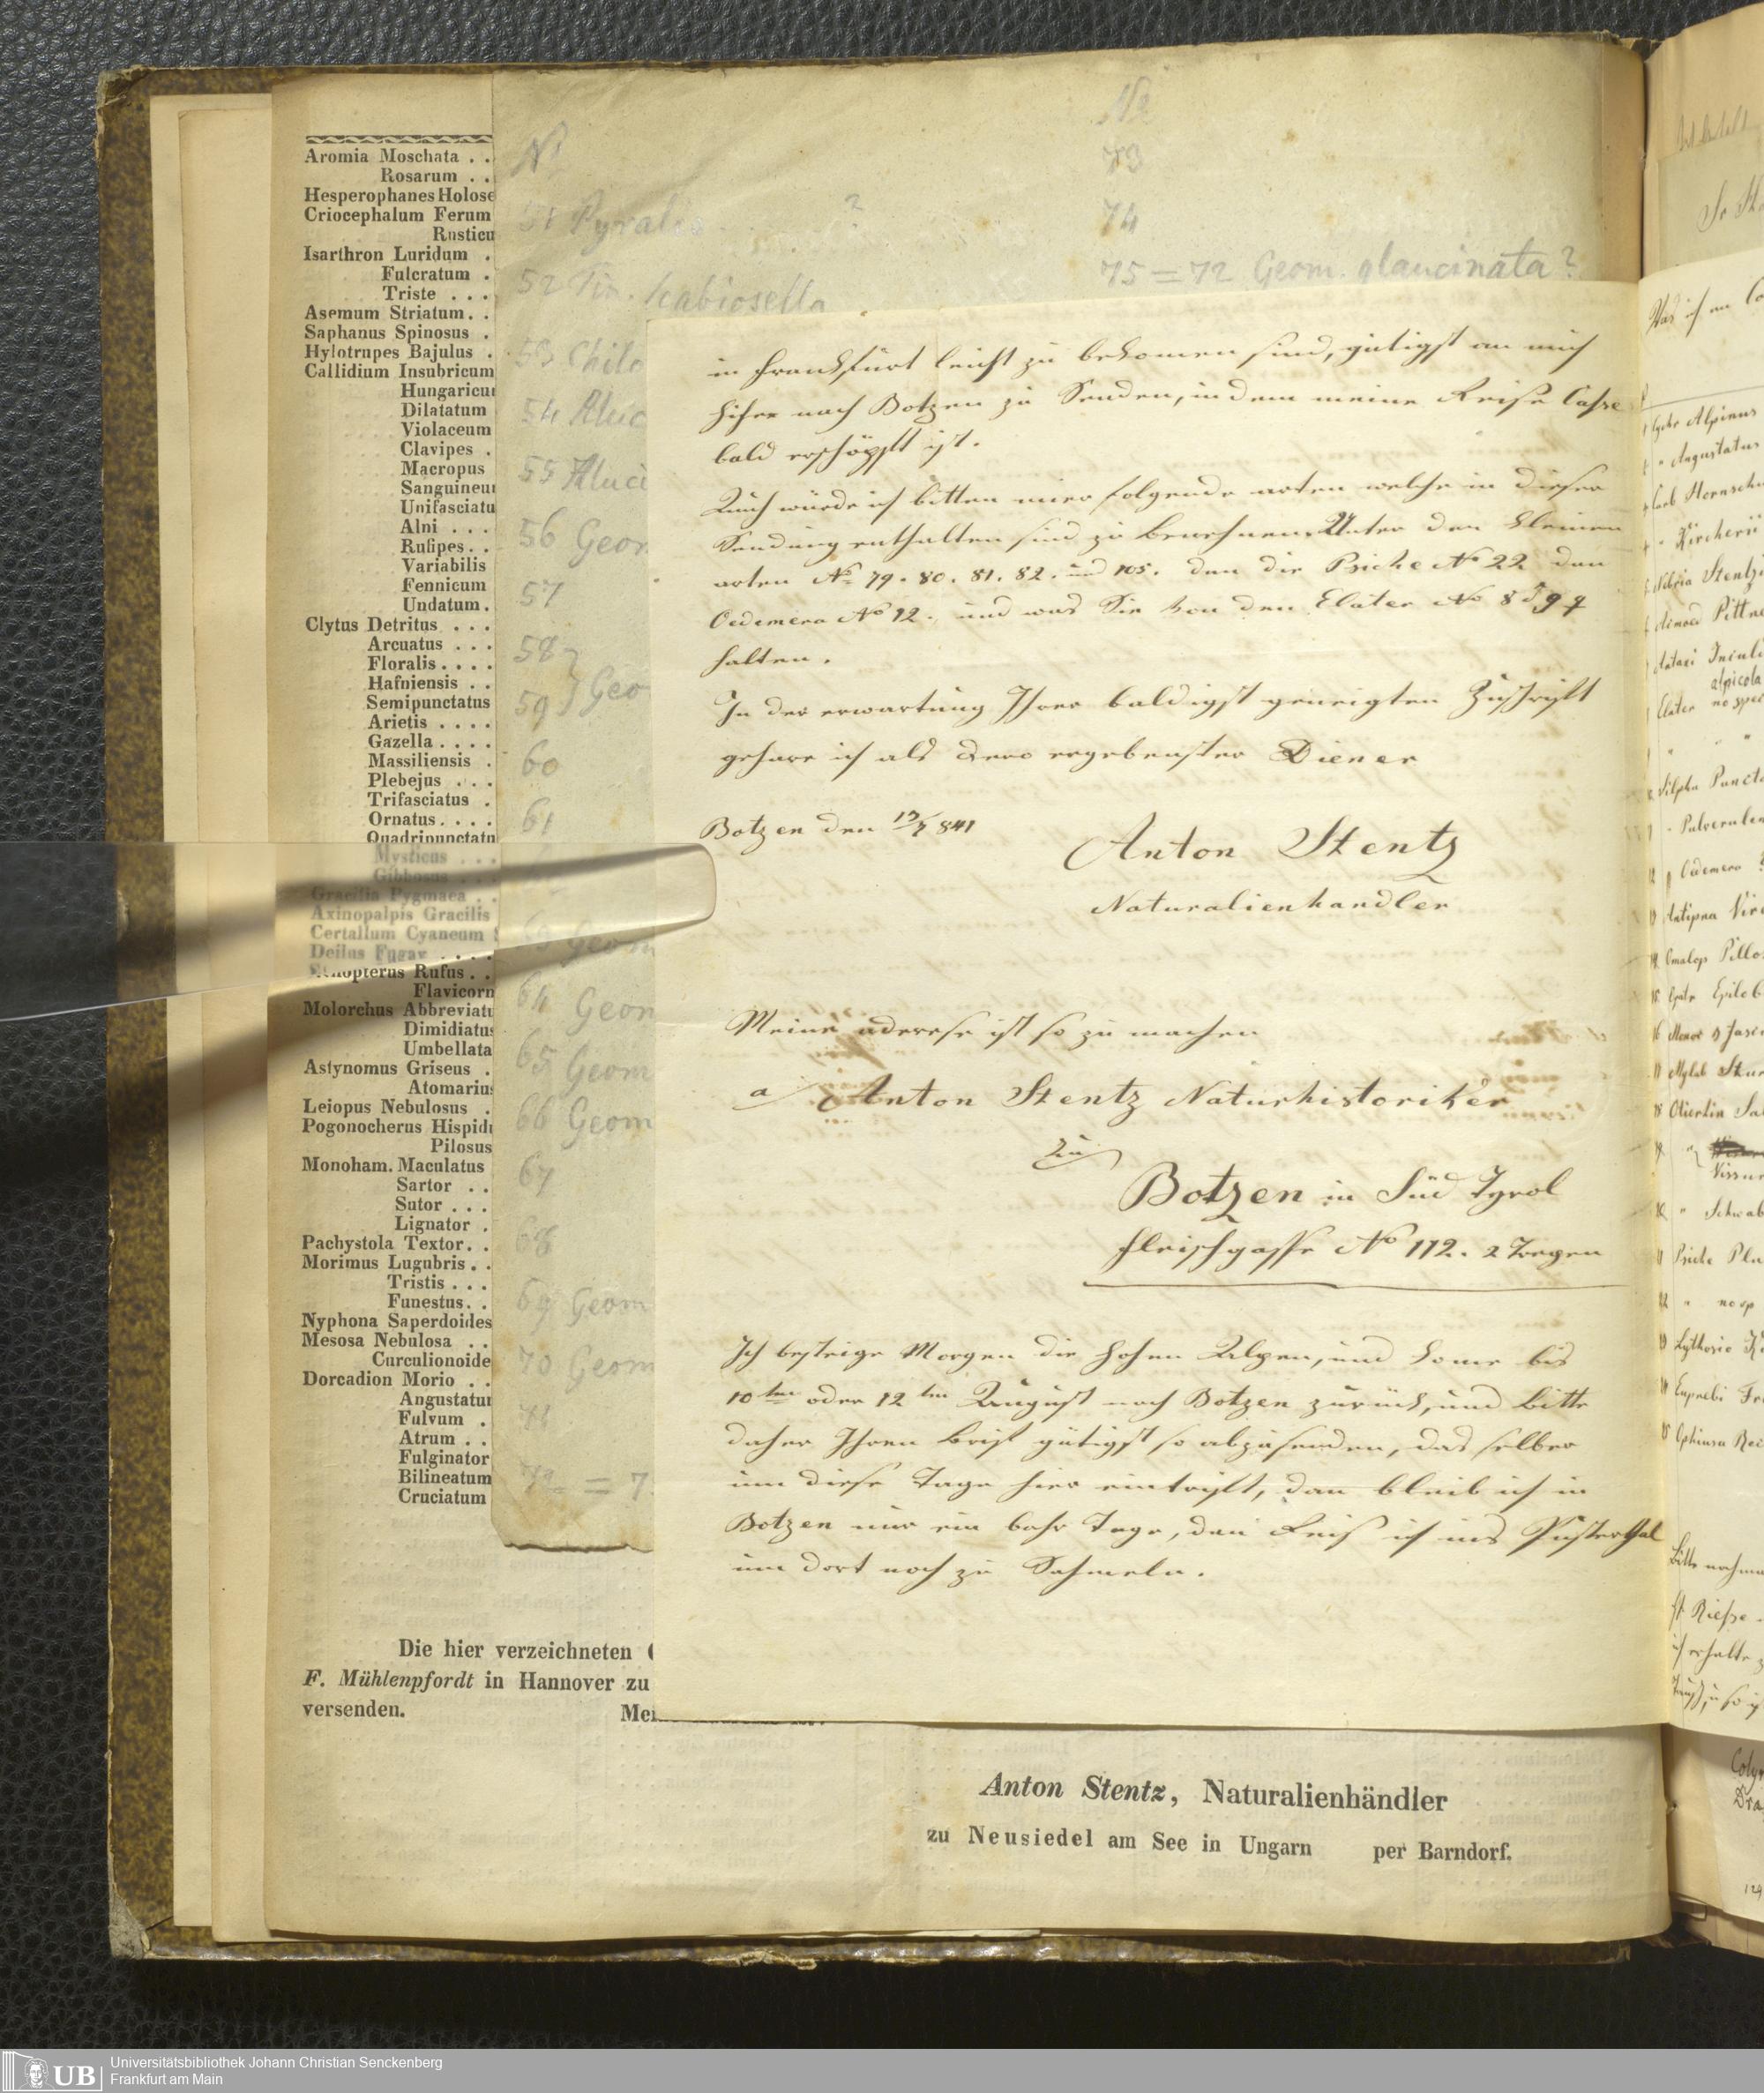 Aromia Moschata . .
Rosarum . .
Hesperophanes Holose
Criocephalum Ferum
Rusticu
Isarthron Luridum .
Fulcratum .
Triste . . .
Asemum Striatum. .
Saphanus Spinosus .
Hylotrupes Bajulus .
Callidium Insubricum
Hungaricu
Dilatatum
Violaceum
Clavipes .
Macropus
Sanguineu
Unifasciatu
Alni . . .
Rufipes. .
Variabilis
Fennicum
Undatum.
Clytus Detritus . . .
Arcuatus . . .
Floralis. . . .
Hafniensis . .
Semipunctatus
Arietis . . . .
Gazella. . . .
Massiliensis .
Plebejus . . .
Trifasciatus .
Ornatus. . . .
Quadripunctatu
Mysticus . . .
Gibbosus . . .
Gracilia Pygmaea . .
Axinopalpis Gracilis
Certallum Cyaneum
Deilus Fugax . . . .
Stenopterus Rufus. .
Flavicorn
Molorchus Abbreviatu
Dimidiatus
Umbellata
Astynomus Griseus .
Atomarius
Leiopus Nebulosus .
Pogonocherus Hispidu
Pilosus
Monoham. Maculatus
Sartor . .
Sutor . . .
Lignator .
Pachystola Textor. .
Morimus Lugubris. .
Tristis . . .
Funestus. .
Nyphona Saperdoides
Mesosa Nebulosa . .
Curculionoide
Dorcadion Morio . .
Angustatu
Fulvum .
Atrum . .
Fulginator
Bilineatum
Cruciatum
Die hier verzeichneten
F. Mühlenpfordt in Hannover zu
versenden.
Mei
Anton Stentz, Naturalienhändler
zu Neusiedel am See in Ungarn per Barndorf.
No
51 Pyralis ?
52 Tin. scabiosella
53 Chilo
54 Aluc
55 Aluci
56 Geom
57
58 } Geo
59
60
61
63 Geom
64 Geom
65 Geom
66 Geom
67
68
69 Geom
70 Geom
71
72 = 7
No
73
74
75 = 72 Geom. glaucinata ?
in Frankfurt leicht zu bekomen sind, gütigst an mich
hiher nach Botzen zu Senden, indem meine Reise Casse
bald erschöpft ist.
Auch würde ich bitten mier folgende arten welche in dieser
Sendung enthalten sind zu benehnen. Unter den kleinen
arten No 79. 80. 81. 82. und 105. dan die Psiche No 22 dan
Oedemera No 12., und was Sie von den Elater No 8 & 9
halten.
In der erwartung Ihrer baldigst geneigten Zuschrift
geharre ich als dero ergebenster Diener
Botzen den 13/7 841
Anton Stentz
Naturalienhandler
Meine aderese ist so zu machen
a Anton Stentz Naturhistoriker
zu
Botzen in Süd Tyrol
Fleischgasse No 112. 2
Ich besteige Morgen die hohen Alpen, und kome bis
10ten oder 12ten August nach Botzen zurück, und bitte
daher Ihren brief gütigst so abzusenden, das selber
um diese Tage hier eintrift, dan bleib ich in
Botzen nur ein bahr Tage, dan Reis ich ins Pusterthal
um dort noch zu Sahmeln.
Alpinus
Angustatus
Kircherii
Nebria Stentzi
alpicola
Elater no spec
Silpha Puncta
Pulverulen
Oedemera
Omalop Pillo
Psiche
no sp
Universitätsbibliothek Johann Christian Senckenberg
Frankfurt am Main
UB